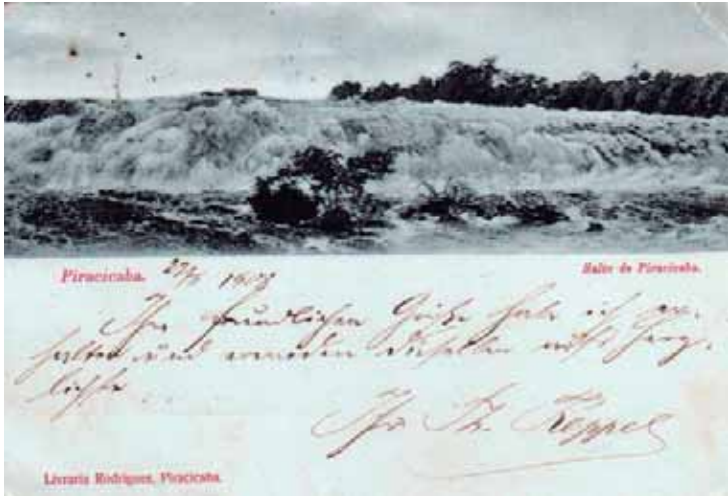 Piracicaba.
Salto de Piracicaba.
Ihre freundlichen Grüße habe ich er-
halten und erwiedere dieselben aufs herz-
lichste
Ihr Th. Keppel
Livraria Rodrigues, Piracicaba.